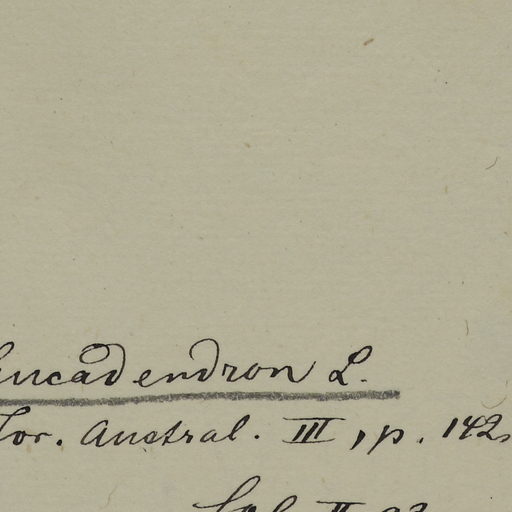 eucadendron L.
lor. Austral. III, p. 142,